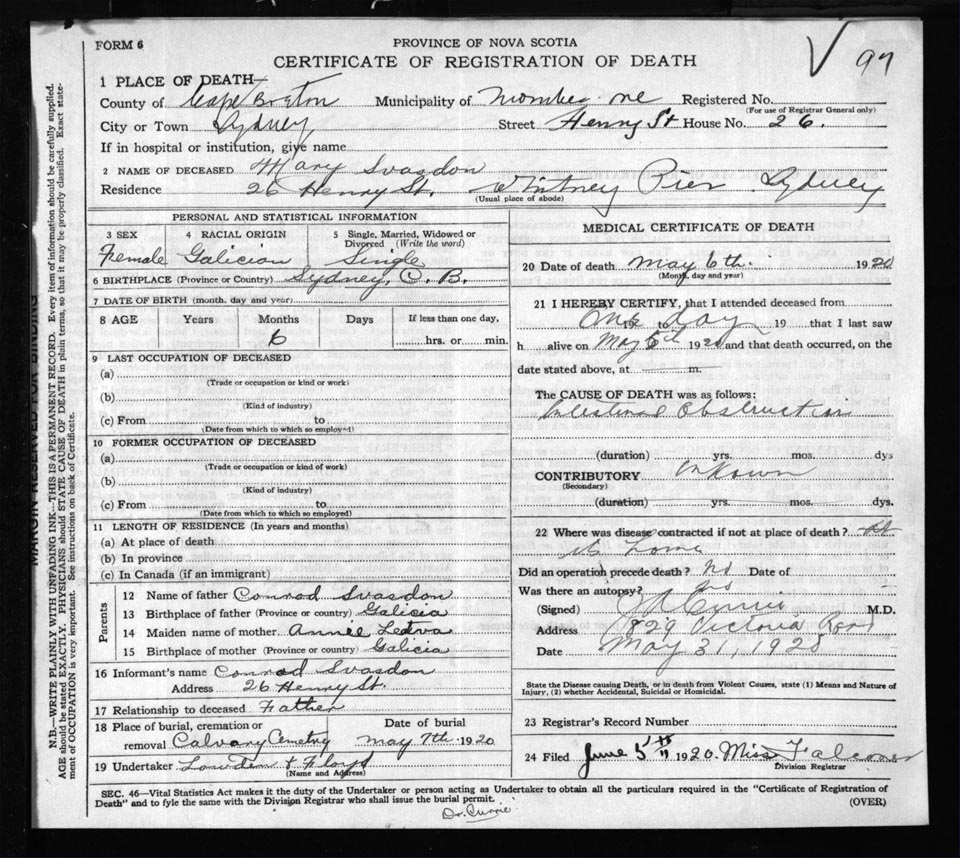 FORM 6
PROVINCE OF NOVA SCOTIA
97
CERTIFICATE OF REGISTRATION OF DEATH
1 PLACE OF DEATH—
County of Cape Breton Municipality of Registered No.
(For use of Registrar General only)
City or Town Sydney Street Henry St House No. 26.
If in hospital or institution, give name
2 NAME OF DECEASED Mary Svasdon
Residence 26 Henry St. Whitney Pier Sydney
(Usual place of abode)
PERSONAL AND STATISTICAL INFORMATION
3 SEX 4 RACIAL ORIGIN 5 Single, Married, Widowed or Divorced (Write the word)
Female Galician Single
6 BIRTHPLACE (Province or Country) Sydney, C. B.
7 DATE OF BIRTH (month, day and year)
8 AGE Years Months Days If less than one day,
6 hrs. or min.
9 LAST OCCUPATION OF DECEASED
(a)
(Trade or occupation or kind or work)
(b)
(Kind of industry)
(c) From to
(Date from which to which so employed)
10 FORMER OCCUPATION OF DECEASED
(a)
(Trade or occupation or kind of work)
(b)
(Kind of industry)
(c) From to
(Date from which to which so employed)
11 LENGTH OF RESIDENCE (In years and months)
(a) At place of death
(b) In province
(c) In Canada (if an immigrant)
Parents
12 Name of father Conrad Svasdon
13 Birthplace of father (Province or country) Galicia
14 Maiden name of mother Annie
15 Birthplace of mother (Province or country) Galicia
16 Informant's name Conrad Svasdon
Address 26 Henry St.
17 Relationship to deceased Father
18 Place of burial, cremation or Date of burial
removal Calvary Cemetry May 7th 1920
19 Undertaker Lowden & Floyd
(Name and Address)
MEDICAL CERTIFICATE OF DEATH
20 Date of death May 6th 1920
(Month, day and year)
21 I HEREBY CERTIFY, that I attended deceased from
One 19 to day 19 that I last saw
h alive on May 6th 1920 and that death occurred, on the
date stated above, at m.
The CAUSE OF DEATH was as follows:
Intestinal Obstruction
(duration) yrs. mos. dys
CONTRIBUTORY Unknown
(Secondary)
(duration) yrs. mos. dys.
22 Where was disease contracted if not at place of death? At
its home
Did an operation precede death? No Date of
Was there an autopsy? No
(Signed) Currie M.D.
Address 829 Victoria Road
Date May 31, 1920
State the Disease causing Death, or in death from Violent Causes, state (1) Means and Nature of
Injury, (2) whether Accidental, Suicidal or Homicidal.
23 Registrar's Record Number
24 Filed June 5th 1920. Miss Falconer
Division Registrar
SEC. 46—Vital Statistics Act makes it the duty of the Undertaker or person acting as Undertaker to obtain all the particulars required in the "Certificate of Registration of
Death" and to fyle the same with the Division Registrar who shall issue the burial permit. (OVER)
Dr. Currie
MARGIN RESERVED FOR BINDING
N.B.—WRITE PLAINLY WITH UNFADING INK—THIS IS A PERMANENT RECORD. Every item of information should be carefully supplied.
AGE should be stated EXACTLY. PHYSICIANS should STATE CAUSE OF DEATH in plain terms, so that it may be properly classified. Exact state-
ment of OCCUPATION is very important. See instructions on back of Certificate.